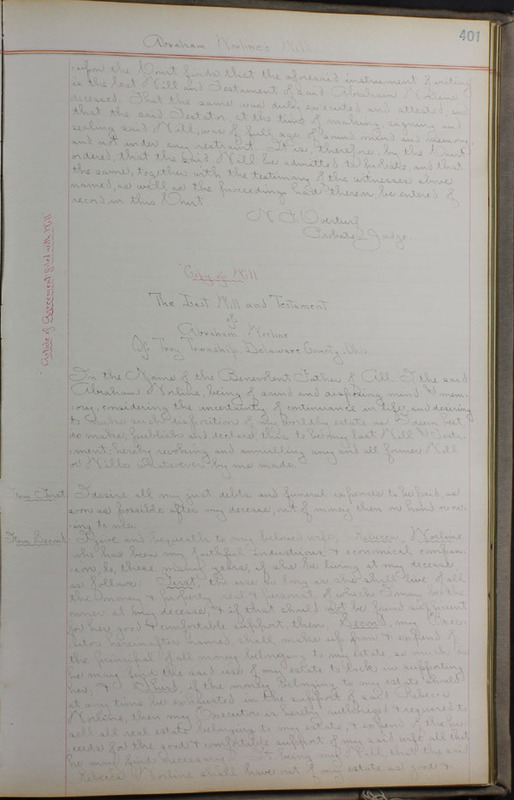 401
Abraham Norline's Will
upon the Court finds that the aforesaid instrument of writing
is the last Will and Testament of said Abraham Norline
deceased. That the same was duly executed and attested, and
that the said Testator, at the time of making, signing and
sealing said Will, was of full age, of sound mind and memory,
and not under any restraint. It is, therefore, by the Court
ordered, that the said Will be admitted to probate, and that
the same, together with the testimony of the witnesses above
named, as well as the proceedings had therein, be entered of
record in this Court
Probate Judge
Article of Agreement filed with Will
Copy of Will
The Last Will and Testament
of
Abraham Norline
Of Troy Township, Delaware County, Ohio
In the Name of the Benevolent Father of All. I, the said
Abraham Norline, being of sound and disposing mind & mem-
ory, considering the uncertainty of continuance in life, and desiring
to make such disposition of my worldly estate as I deem best
do make, publish and declare this to be my last Will & Testa-
ment: hereby revoking and annulling any and all former Will
or Wills whatsoever by me made.
Item First
I desire all my just debts and funeral expenses to be paid, as
soon as possible after my decease, out of money then on hand or ow-
ing to me.
Item Second
I give and bequeath to my beloved wife, Rebecca Norline
who has been my faithful industrious & economical compan-
ion, lo, these many years, if she be living at my decease
as follows: First, the use so long as she shall live of all
the money & property real & personal of which I may be the
owner at my decease, & if that should not be found sufficient
for her good & comfortable support, then, Second, my Execu-
tor hereinafter named, shall make up from & expend of
the principal of all money belonging to my estate so much as
he may find the said use of my estate to lack in supporting
her, & Third, if the money belonging to my estate should
at any time be exhausted in the support of said Rebecca
Norline, then my Executor is hereby authorized & required to
sell all real estate belonging to my estate, & expend of the pro-
ceeds for the good & comfortable support of my said wife all that
he may find necessary, it being my Will that the said
Rebecca Norline shall have out of my estate as good &